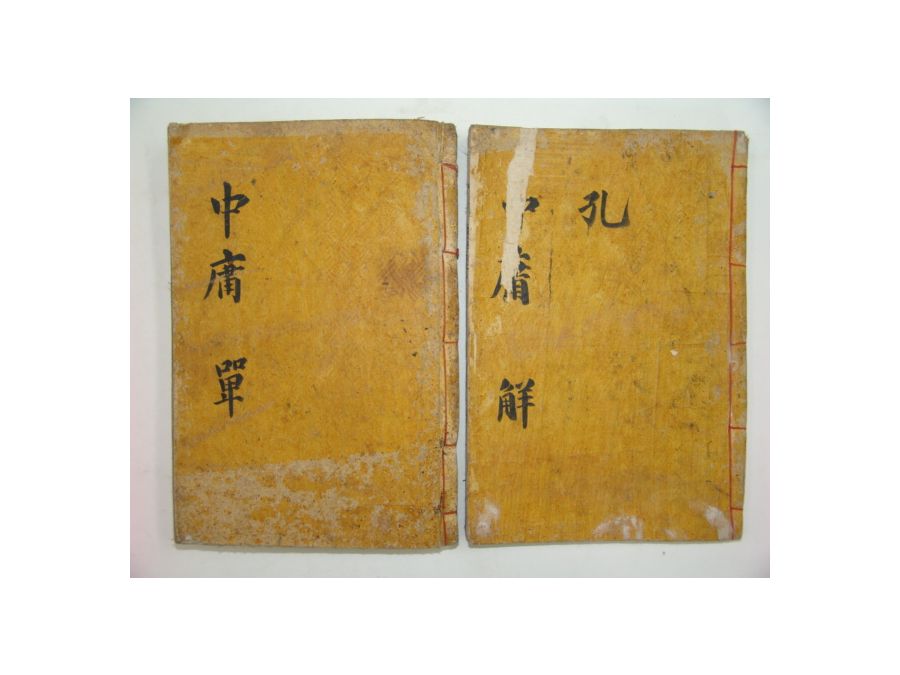 中庸 單
孔
中庸 觧